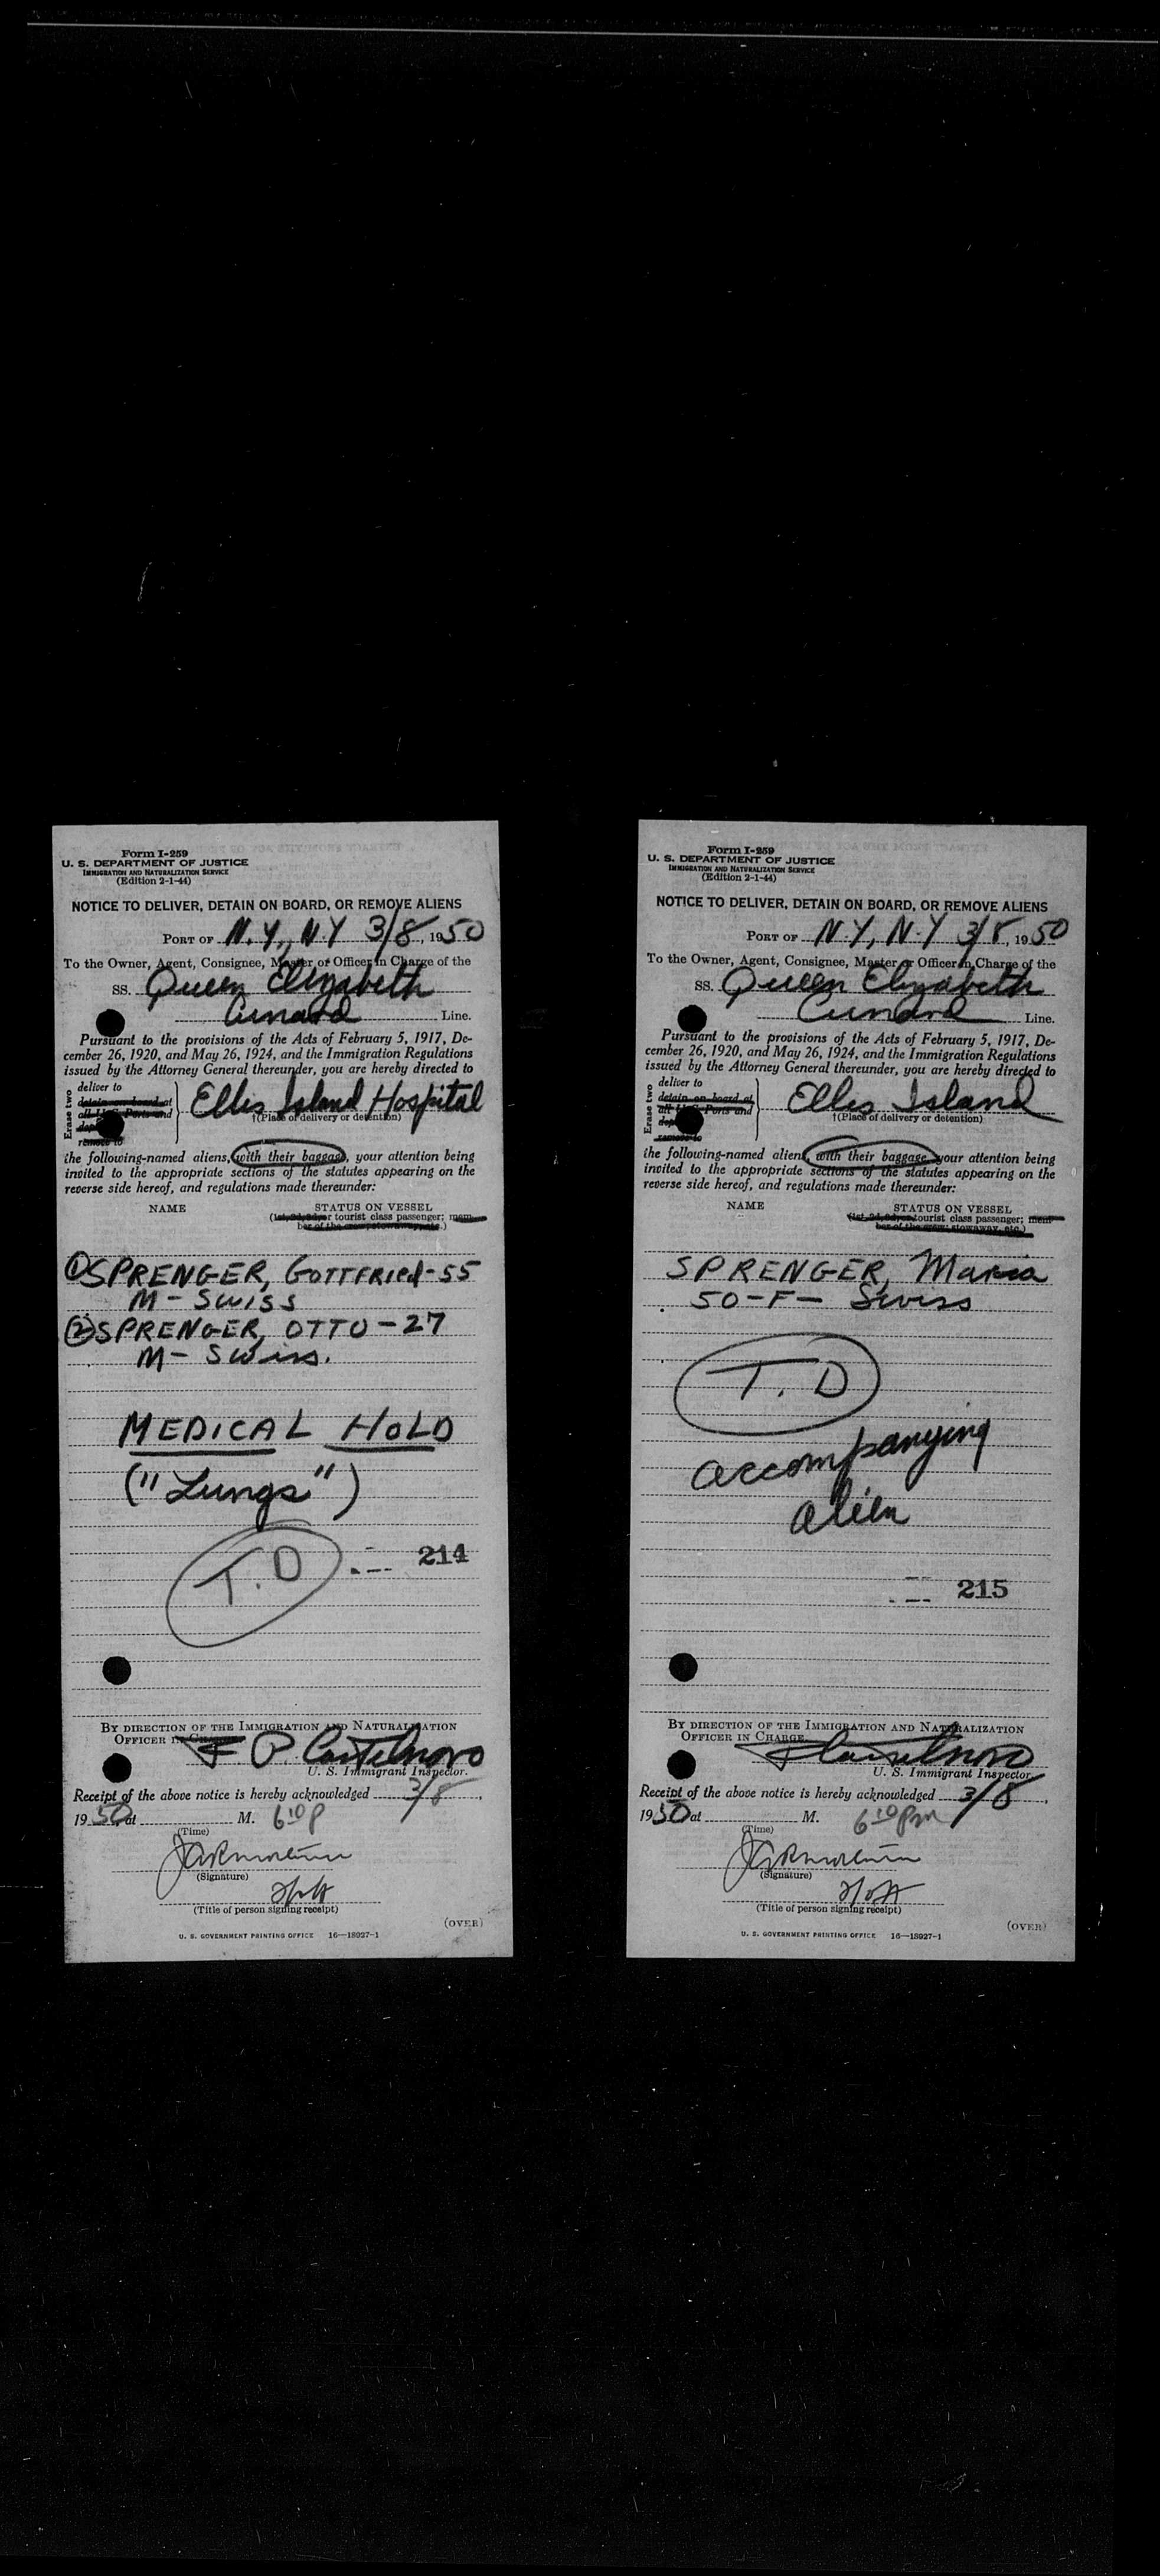 Form I-259
U. S. DEPARTMENT OF JUSTICE
IMMIGRATION AND NATURALIZATION SERVICE
(Edition 2-1-44)
NOTICE TO DELIVER, DETAIN ON BOARD, OR REMOVE ALIENS
PORT OF N.Y., N.Y 3/8, 1950
To the Owner, Agent, Consignee, Master or Officer in Charge of the
SS. Queen Elizabeth
Cunard Line.
Pursuant to the provisions of the Acts of February 5, 1917, De-
cember 26, 1920, and May 26, 1924, and the Immigration Regulations
issued by the Attorney General thereunder, you are hereby directed to
Erase two
deliver to
detain on board at
all U. S. Ports and
remove to
Ellis Island Hospital
†(Place of delivery or detention)
the following-named aliens, with their baggage, your attention being
invited to the appropriate sections of the statutes appearing on the
reverse side hereof, and regulations made thereunder:
NAME STATUS ON VESSEL
(1st, 2d, 3d, or tourist class passenger; mem-
ber of the crew, stowaway, etc.)
① SPRENGER, GOTTFRIEd-55
M - SWISS
② SPRENGER, OTTO - 27
M - Swiss.
MEDICAL HOLD
("Lungs")
T.D 214
BY DIRECTION OF THE IMMIGRATION AND NATURALIZATION
OFFICER IN CHARGE
F P Castelnovo
U. S. Immigrant Inspector.
Receipt of the above notice is hereby acknowledged 3/8,
1950 at M. 6 10 P
(Time)
(Signature)
(Title of person signing receipt)
(OVER)
U. S. GOVERNMENT PRINTING OFFICE 16—18027-1
Form I-259
U. S. DEPARTMENT OF JUSTICE
IMMIGRATION AND NATURALIZATION SERVICE
(Edition 2-1-44)
NOTICE TO DELIVER, DETAIN ON BOARD, OR REMOVE ALIENS
PORT OF N.Y, N.Y 3/8, 1950
To the Owner, Agent, Consignee, Master or Officer in Charge of the
SS. Queen Elizabeth
Cunard Line.
Pursuant to the provisions of the Acts of February 5, 1917, De-
cember 26, 1920, and May 26, 1924, and the Immigration Regulations
issued by the Attorney General thereunder, you are hereby directed to
Erase two
deliver to
detain on board at
all U. S. Ports and
remove to
Ellis Island
†(Place of delivery or detention)
the following-named aliens, with their baggage, your attention being
invited to the appropriate sections of the statutes appearing on the
reverse side hereof, and regulations made thereunder:
NAME STATUS ON VESSEL
(1st, 2d, 3d, or tourist class passenger; mem-
ber of the crew, stowaway, etc.)
SPRENGER, Maria
50-F- Swiss
T.D
accompanying
alien
215
BY DIRECTION OF THE IMMIGRATION AND NATURALIZATION
OFFICER IN CHARGE
F P Castelnovo
U. S. Immigrant Inspector.
Receipt of the above notice is hereby acknowledged 3/8,
1950 at M. 6 10 pm
(Time)
(Signature)
(Title of person signing receipt)
(OVER)
U. S. GOVERNMENT PRINTING OFFICE 16—18027-1